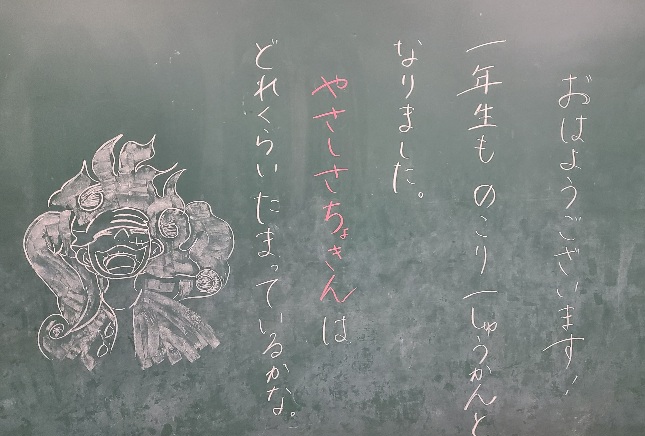 おはようございます!!
一年生ものこり一しゅうかんと
なりました。
やさしさちょきんは
どれくらいたまっているかな。